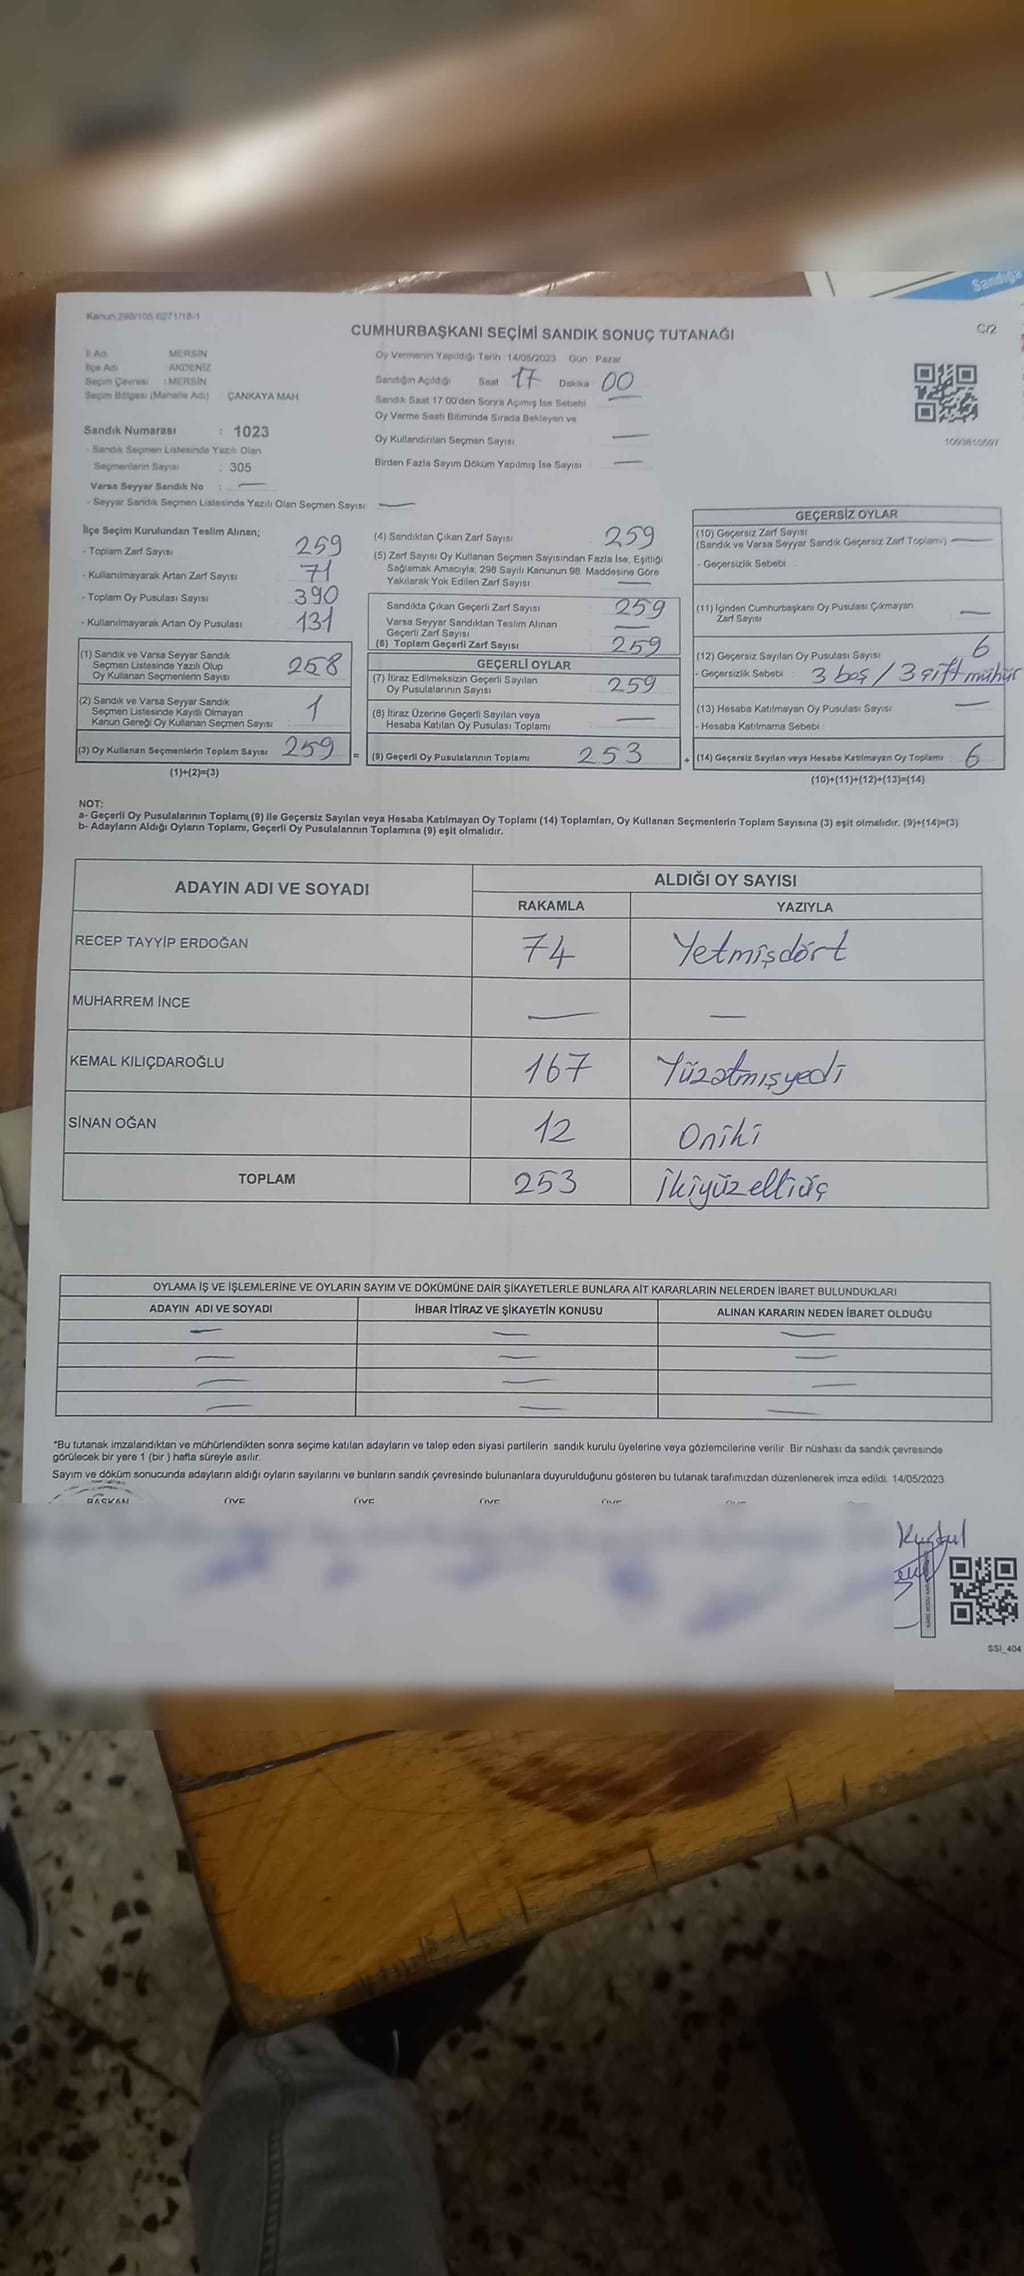 Sandığa
Kanun 298/105 6271/18-1
CUMHURBAŞKANI SEÇİMİ SANDIK SONUÇ TUTANAĞI
C/2
İl Adı MERSİN
İlçe Adı AKDENİZ
Seçim Çevresi : MERSİN
Seçim Bölgesi (Mahalle Adı) : ÇANKAYA MAH.
Sandık Numarası : 1023
- Sandık Seçmen Listesinde Yazılı Olan
Seçmenlerin Sayısı : 305
Varsa Seyyar Sandık No : —
- Seyyar Sandık Seçmen Listesinde Yazılı Olan Seçmen Sayısı: —
Oy Vermenin Yapıldığı Tarih : 14/05/2023 Gün : Pazar
Sandığın Açıldığı Saat 17 Dakika 00
Sandık Saat 17:00'den Sonra Açımış İse Sebebi —
Oy Verme Saati Bitiminde Sırada Bekleyen ve
Oy Kullandırılan Seçmen Sayısı —
Birden Fazla Sayım Döküm Yapılmış İse Sayısı —
İlçe Seçim Kurulundan Teslim Alınan;
- Toplam Zarf Sayısı 259
- Kullanılmayarak Artan Zarf Sayısı 71
- Toplam Oy Pusulası Sayısı 390
- Kullanılmayarak Artan Oy Pusulası 131
(1) Sandık ve Varsa Seyyar Sandık
Seçmen Listesinde Yazılı Olup
Oy Kullanan Seçmenlerin Sayısı 258
(2) Sandık ve Varsa Seyyar Sandık
Seçmen Listesinde Kayıtlı Olmayan
Kanun Gereği Oy Kullanan Seçmen Sayısı 1
(3) Oy Kullanan Seçmenlerin Toplam Sayısı 259 =
(1)+(2)=(3)
(4) Sandıktan Çıkan Zarf Sayısı 259
(5) Zarf Sayısı Oy Kullanan Seçmen Sayısından Fazla İse, Eşitliği
Sağlamak Amacıyla; 298 Sayılı Kanunun 98. Maddesine Göre
Yakılarak Yok Edilen Zarf Sayısı —
Sandıkta Çıkan Geçerli Zarf Sayısı 259
Varsa Seyyar Sandıktan Teslim Alınan
Geçerli Zarf Sayısı —
(6) Toplam Geçerli Zarf Sayısı 259
GEÇERLİ OYLAR
(7) İtiraz Edilmeksizin Geçerli Sayılan
Oy Pusulalarının Sayısı 259
(8) İtiraz Üzerine Geçerli Sayılan veya
Hesaba Katılan Oy Pusulası Toplamı —
(9) Geçerli Oy Pusulalarının Toplamı 253 +
GEÇERSİZ OYLAR
(10) Geçersiz Zarf Sayısı
(Sandık ve Varsa Seyyar Sandık Geçersiz Zarf Toplamı) —
- Geçersizlik Sebebi :
(11) İçinden Cumhurbaşkanı Oy Pusulası Çıkmayan
Zarf Sayısı —
(12) Geçersiz Sayılan Oy Pusulası Sayısı 6
- Geçersizlik Sebebi 3 boş / 3 çift mühür
(13) Hesaba Katılmayan Oy Pusulası Sayısı —
- Hesaba Katılmama Sebebi
(14) Geçersiz Sayılan veya Hesaba Katılmayan Oy Toplamı 6
(10)+(11)+(12)+(13)=(14)
NOT:
a- Geçerli Oy Pusulalarının Toplamı (9) ile Geçersiz Sayılan veya Hesaba Katılmayan Oy Toplamı (14) Toplamları, Oy Kullanan Seçmenlerin Toplam Sayısına (3) eşit olmalıdır. (9)+(14)=(3)
b- Adayların Aldığı Oyların Toplamı, Geçerli Oy Pusulalarının Toplamına (9) eşit olmalıdır.
ADAYIN ADI VE SOYADI ALDIĞI OY SAYISI
RAKAMLA YAZIYLA
RECEP TAYYİP ERDOĞAN 74 Yetmişdört
MUHARREM İNCE — —
KEMAL KILIÇDAROĞLU 167 Yüzatmışyedi
SİNAN OĞAN 12 Oniki
TOPLAM 253 İkiyüzelliüç
OYLAMA İŞ VE İŞLEMLERİNE VE OYLARIN SAYIM VE DÖKÜMÜNE DAİR ŞİKAYETLERLE BUNLARA AİT KARARLARIN NELERDEN İBARET BULUNDUKLARI
ADAYIN ADI VE SOYADI İHBAR İTİRAZ VE ŞİKAYETİN KONUSU ALINAN KARARIN NEDEN İBARET OLDUĞU
— — —
— — —
— — —
— — —
*Bu tutanak imzalandıktan ve mühürlendikten sonra seçime katılan adayların ve talep eden siyasi partilerin sandık kurulu üyelerine veya gözlemcilerine verilir. Bir nüshası da sandık çevresinde
görülecek bir yere 1 (bir) hafta süreyle asılır.
Sayım ve döküm sonucunda adayların aldığı oyların sayılarını ve bunların sandık çevresinde bulunanlara duyurulduğunu gösteren bu tutanak tarafımızdan düzenlenerek imza edildi. 14/05/2023
BAŞKAN ÜYE ÜYE ÜYE ÜYE
SSI_404